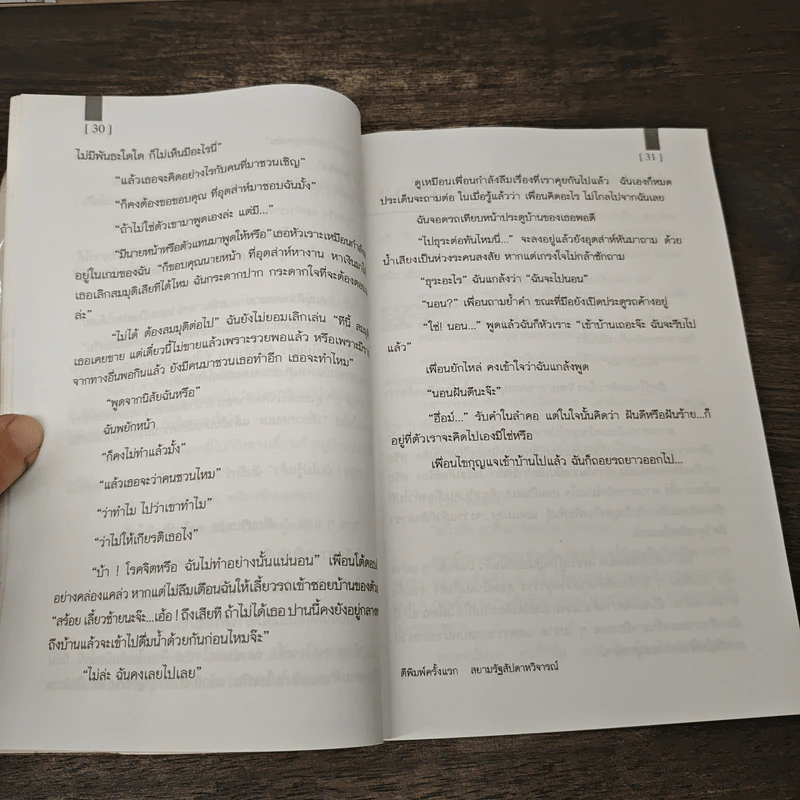 [ 30 ]
ไม่มีพันธะใดใด ก็ไม่เห็นมีอะไรนี่”
“แล้วเธอจะคิดอย่างไรกับคนที่มาชวนเชิญ”
“ก็คงต้องขอขอบคุณ ที่อุตส่าห์มาชอบฉันมั้ง”
“ถ้าไม่ใช่ตัวเขามาพูดเองล่ะ แต่มี...”
“มีนายหน้าหรือตัวแทนมาพูดให้หรือ” เธอหัวเราะเหมือนกำลัง
อยู่ในเกมของฉัน “ก็ขอบคุณนายหน้า ที่อุตส่าห์หางาน หาเงินมา
เธอเลิกสมมุติเสียทีได้ไหม ฉันกระดากปาก กระดากใจที่จะต้อง
ล่ะ”
“ไม่ได้ ต้องสมมุติต่อไป” ฉันยังไม่ยอมเลิกเล่น “ทีนี้
เธอเคยขาย แต่เดี๋ยวนี้ไม่ขายแล้วเพราะรวยพอแล้ว หรือเพราะ
จากทางอื่นพอกินแล้ว ยังมีคนมาชวนเธอทำอีก เธอจะทำไหม”
“พูดจากนิสัยฉันหรือ”
ฉันพยักหน้า
“ก็คงไม่ทำแล้วมั้ง”
“แล้วเธอจะว่าคนชวนไหม”
“ว่าทำไม ไปว่าเขาทำไม”
“ว่าไม่ให้เกียรติเธอไง”
“บ้า ! โรคจิตหรือ ฉันไม่ทำอย่างนั้นแน่นอน” เพื่อนโต้ตอบ
อย่างคล่องแคล่ว หากแต่ไม่ลืมเตือนฉันให้เลี้ยวรถเข้าซอยบ้านของตัว
“สร้อย เลี้ยวซ้ายนะจ๊ะ...เอ้อ ! ถึงเสียที ถ้าไม่ได้เธอ ปานนี้คงยังอยู่กลาง
ถึงบ้านแล้วจะเข้าไปดื่มน้ำด้วยกันก่อนไหมจ๊ะ”
“ไม่ล่ะ ฉันคงเลยไปเลย”
[ 31 ]
ดูเหมือนเพื่อนกำลังลืมเรื่องที่เราคุยกันไปแล้ว ฉันเองก็หมด
ประเด็นจะถามต่อ ในเมื่อรู้แล้วว่า เพื่อนคิดอะไร ไม่ไกลไปจากฉันเลย
ฉันจอดรถเทียบหน้าประตูบ้านของเธอพอดี
“ไปธุระต่อทันไหมนี่...” จะลงอยู่แล้วยังอุตส่าห์หันมาถาม ด้วย
น้ำเสียงเป็นห่วงระคนสงสัย หากแต่เกรงใจไม่กล้าซักถาม
“ธุระอะไร” ฉันแกล้งว่า “ฉันจะไปนอน”
“นอน?” เพื่อนถามย้ำคำ ขณะที่มือยังเปิดประตูรถค้างอยู่
“ใช่! นอน...” พูดแล้วฉันก็หัวเราะ “เข้าบ้านเถอะจ๊ะ ฉันจะรีบไป
แล้ว”
เพื่อนยักไหล่ คงเข้าใจว่าฉันแกล้งพูด
“นอนฝันดีนะจ๊ะ”
“ฮื่อม์...” รับคำในลำคอ แต่ในใจนั้นคิดว่า ฝันดีหรือฝันร้าย...ก็
อยู่ที่ตัวเราจะคิดไปเองมิใช่หรือ
เพื่อนไขกุญแจเข้าบ้านไปแล้ว ฉันก็ถอยรถยาวออกไป...
ตีพิมพ์ครั้งแรก สยามรัฐสัปดาหวิจารณ์